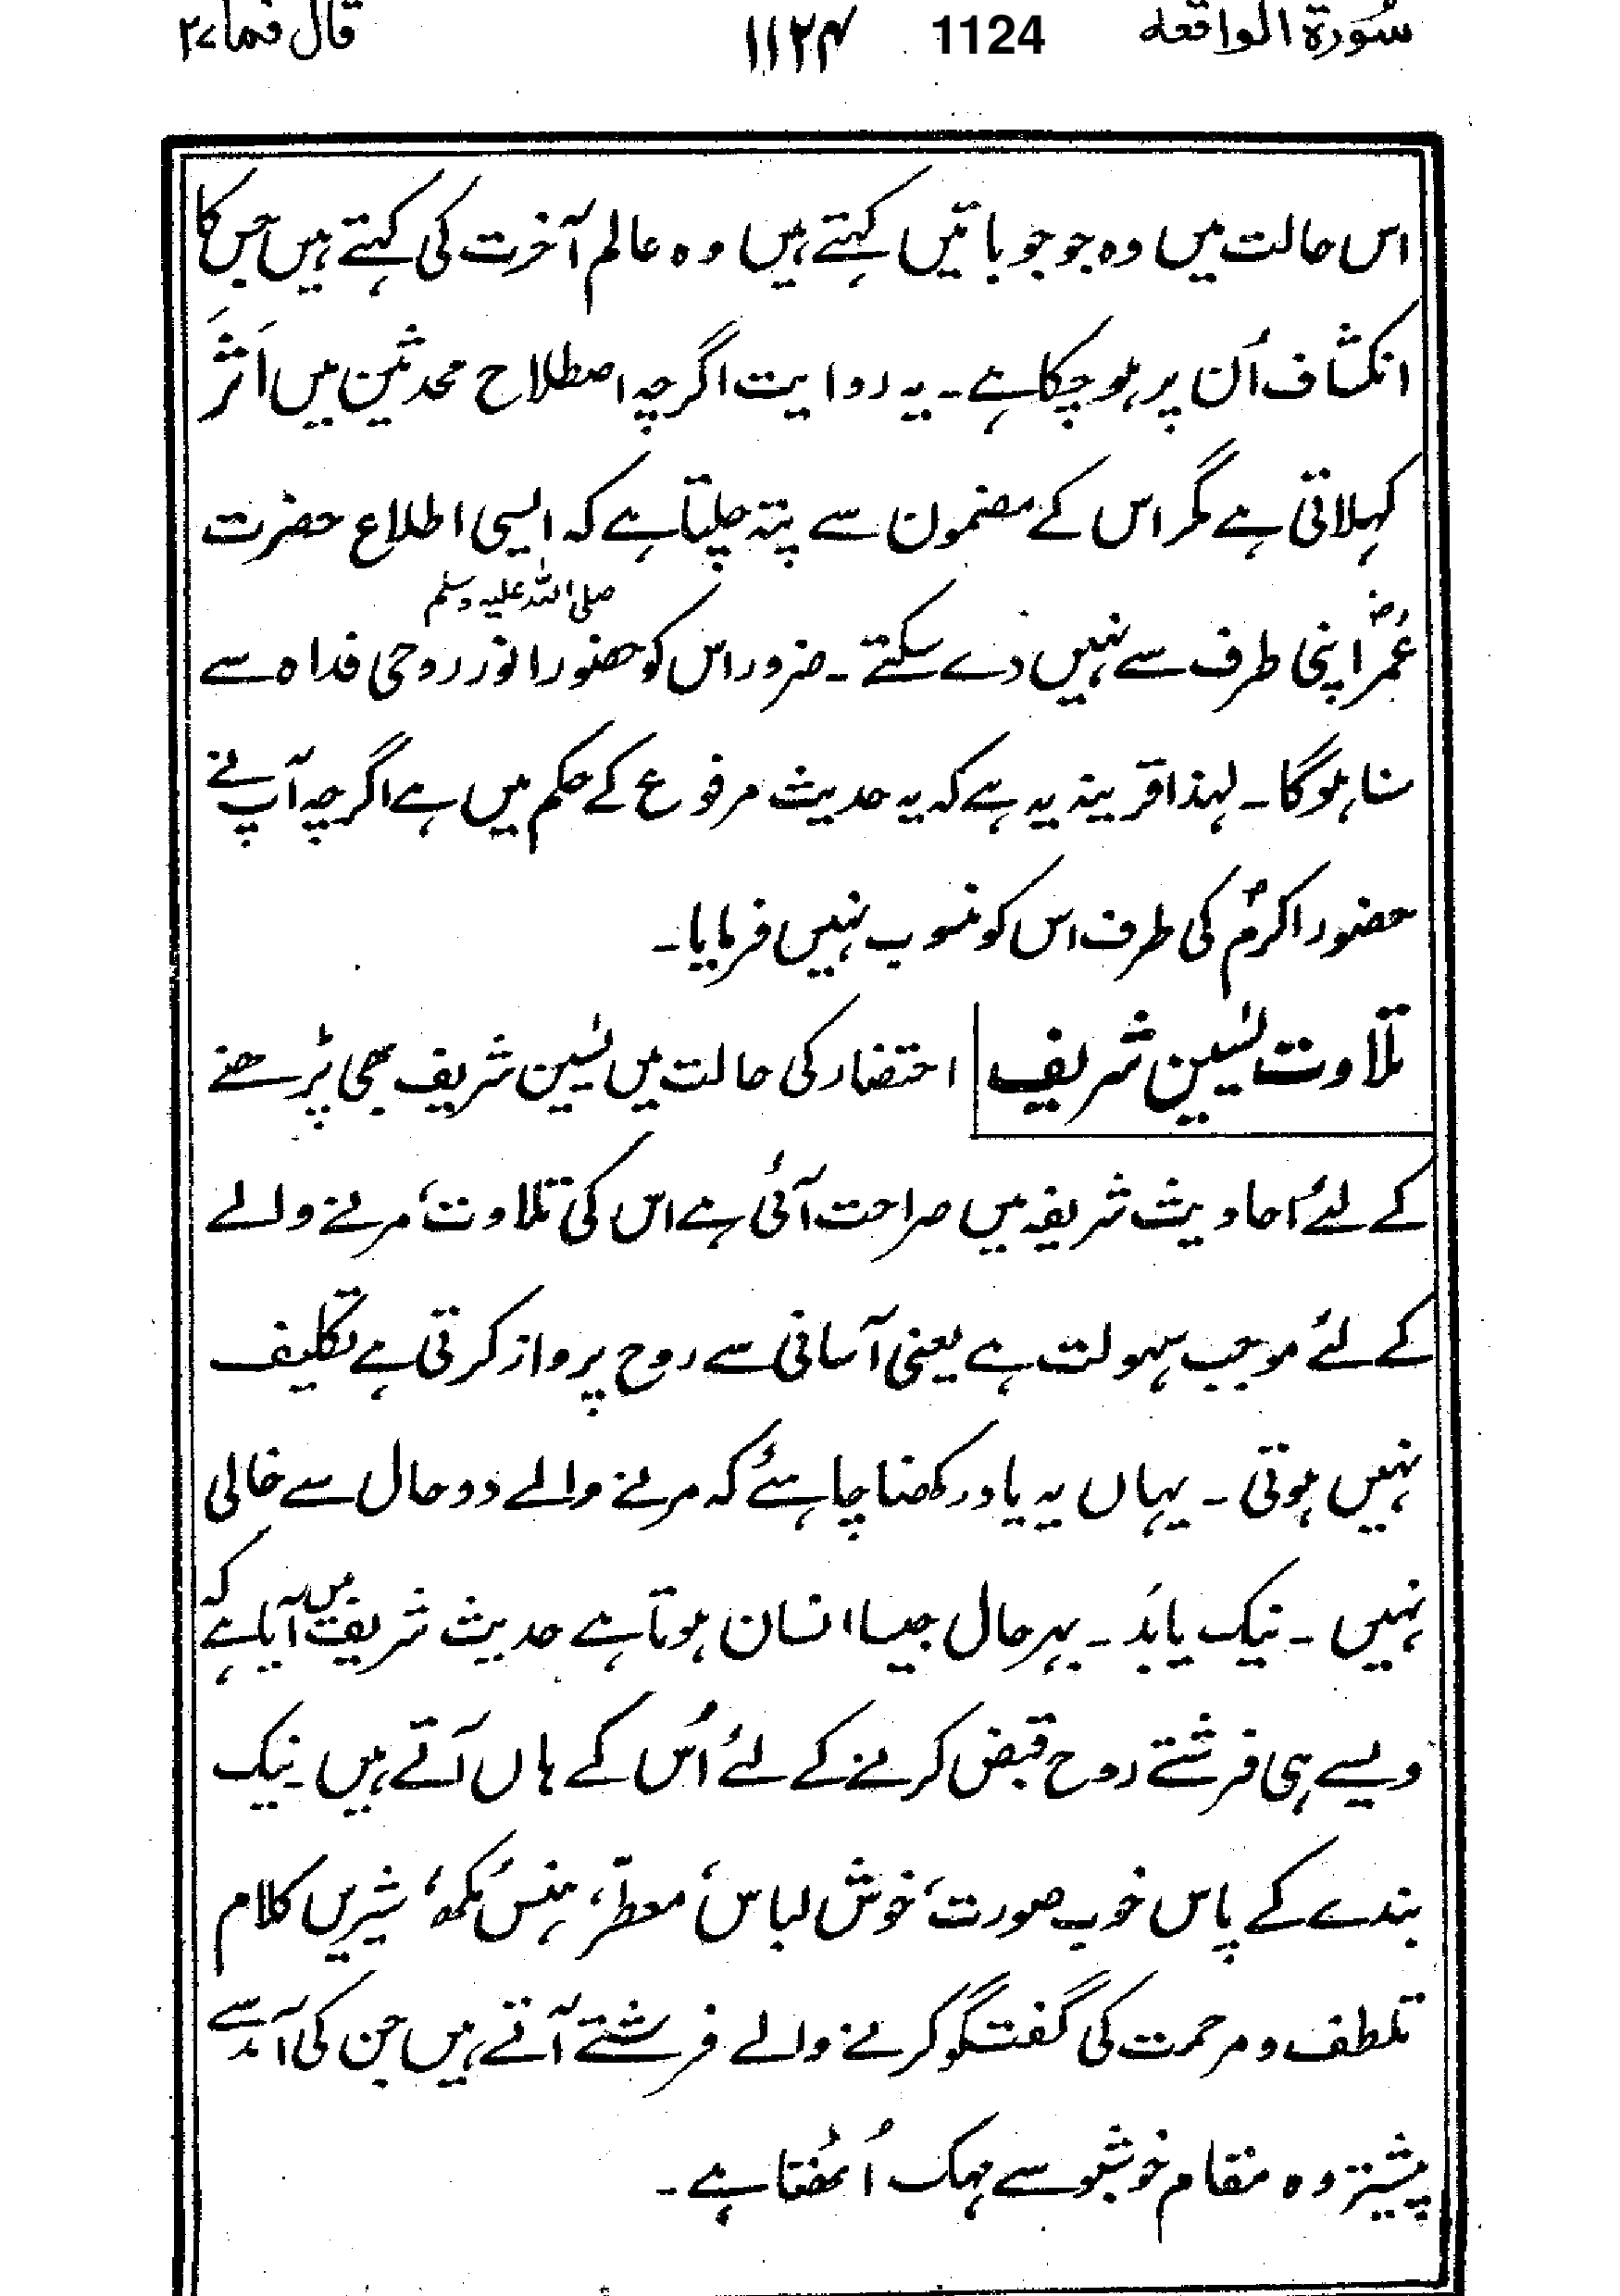 سُورۃ الواقعہ 1124 ۱۱۲۴ قال فما ۲۷
اس حالت میں وہ جو جو باتیں کہتے ہیں وہ عالم آخرت کی کہتے ہیں جس کا
انکشاف اُن پر ہو چکا ہے۔ یہ روایت اگرچہ اصطلاح محدثین میں اَثَر
کہلاتی ہے مگر اس کے مضمون سے پتہ چلتا ہے کہ ایسی اطلاع حضرت
عُمرؓ اپنی طرف سے نہیں دے سکتے۔ ضرور اس کو حضور انور روحی فداہ صلی اللہ علیہ وسلم سے
سنا ہوگا۔ لہذا قرینہ یہ ہے کہ یہ حدیث مرفوع کے حکم میں ہے اگرچہ آپ نے
حضور اکرمؐ کی طرف اس کو منسوب نہیں فرمایا۔
تلاوت یٰسین شریف احتضار کی حالت میں یٰسین شریف بھی پڑھنے
کے لئے احادیث شریفہ میں صراحت آئی ہے اس کی تلاوت، مرنے والے
کے لئے موجب سہولت ہے یعنی آسانی سے روح پرواز کرتی ہے تکلیف
نہیں ہوتی۔ یہاں یہ یاد رکھنا چاہئے کہ مرنے والے دو حال سے خالی
نہیں۔ نیک یا بَد۔ بہرحال جیسا انسان ہوتا ہے حدیث شریف میں آیا ہے کہ
ویسے ہی فرشتے روح قبض کرنے کے لئے اُس کے ہاں آتے ہیں۔ نیک
بندے کے پاس خوب صورت، خوش لباس، معطّر، ہنس مُکھ، شیریں کلام
تلطف و مرحمت کی گفتگو کرنے والے فرشتے آتے ہیں جن کی آمد سے
پیشتر وہ مقام خوشبو سے مہک اُٹھتا ہے۔